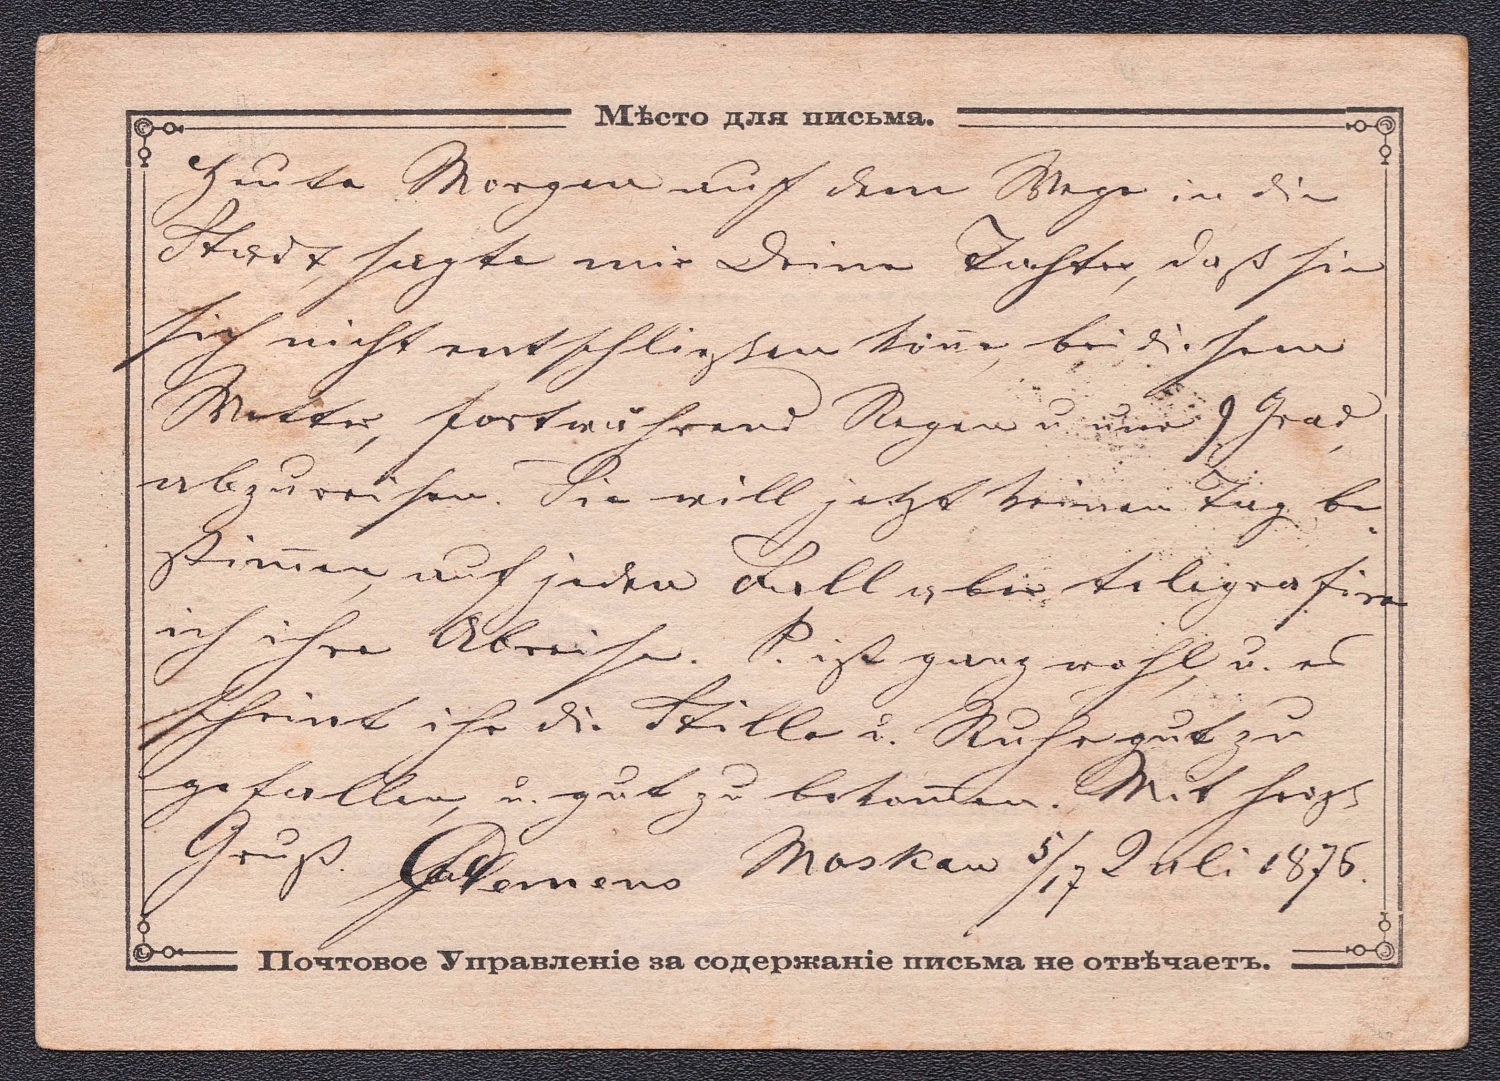 Мѣсто для письма.
Heute Morgen auf dem Wege in die
Stadt, sagte mir Deine Tochter, daß sie
sich nicht entschließen könne, bei diesem
Wetter, fortwährend Regen u. nur 9 Grad,
abzureisen. Sie will jetzt keinen Tag be-
stimmen, auf jeden Fall aber telegrafire
ich ihre Abreise. P. ist ganz wohl, u. es
scheint ihr die Stille u. Ruhe gut zu
gefallen, u. gut zu bekommen. Mit herzl
Gruß. Clemens Moskau 5/17 Juli 1876.
Почтовое Управленіе за содержаніе письма не отвѣчаетъ.